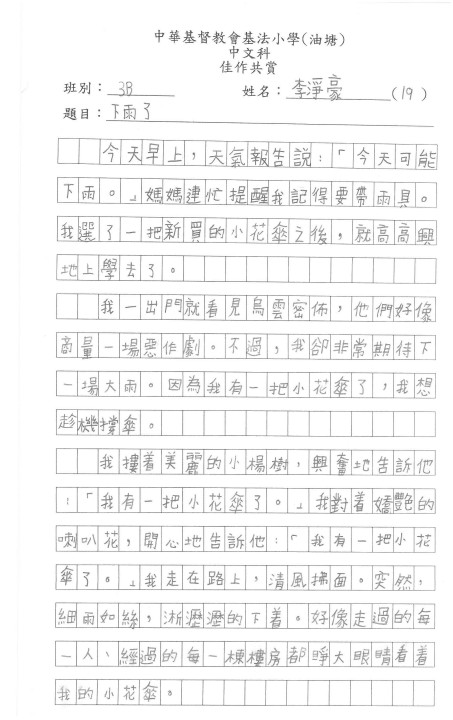 中華基督教會基法小學(油塘)
中文科
佳作共賞
班別：3B 姓名：李淨豪(19)
題目：下雨了
今天早上，天氣報告說：「今天可能
下雨。」媽媽連忙提醒我記得要帶雨具。
我選了一把新買的小花傘之後，就高高興
地上學去了。
我一出門就看見烏雲密佈，他們好像
商量一場惡作劇。不過，我卻非常期待下
一場大雨。因為我有一把小花傘了，我想
趁機撐傘。
我摟着美麗的小楊樹，興奮地告訴他
：「我有一把小花傘了。」我對着嬌艷的
喇叭花，開心地告訴他：「我有一把小花
傘了。」我走在路上，清風拂面。突然，
細雨如絲，淅瀝瀝的下着。好像走過的每
一人、經過的每一棟樓房都睜大眼睛看着
我的小花傘。